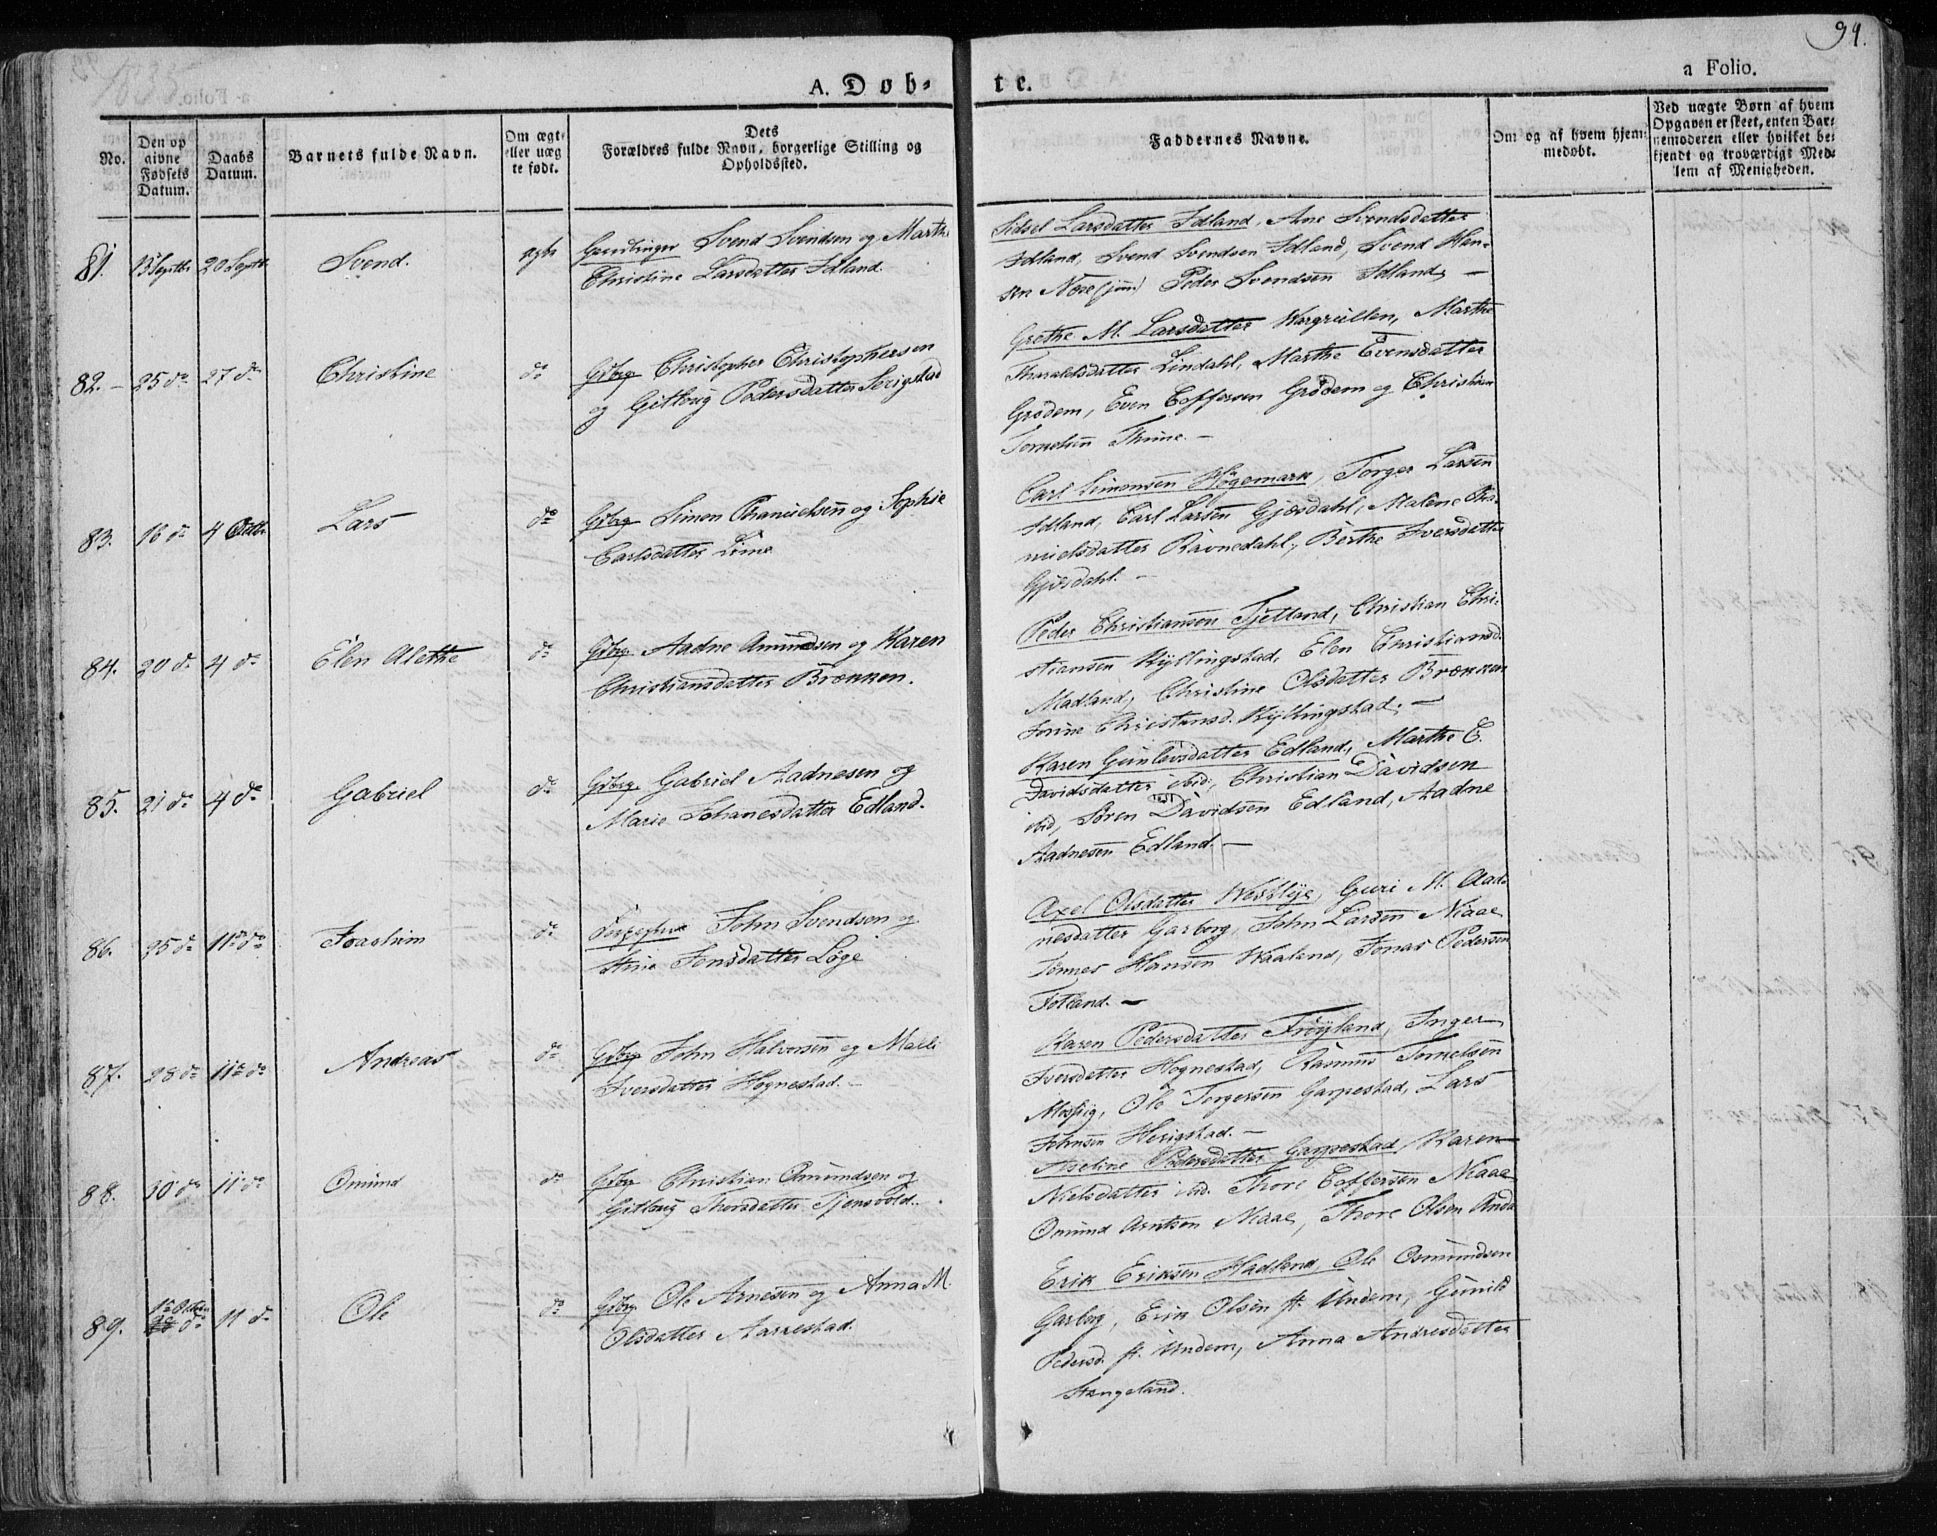 1835
94.
A. Døb-
te.
a Folio.
No.
Den op
givne
Fødsels
Datum.
Daabs
Datum.
Barnets fulde Navn.
Om ægte
eller uæg
te født.
Dets
Forældres fulde Navn, borgerlige Stilling og
Opholdssted.
Faddernes Navne.
Om og af hvem hjem-
medøbt.
Ved uægte Børn af hvem
Opgaven er skeet, enten Bar-
nemoderen eller hvilket be-
kjendt og troværdigt Med-
lem af Menigheden.
81. 13 Septbr 20 Septbr Svend. ægte Svend Svendsen og Marthe
Christine Larsdatter Idland.
Sidsel Larsdatter Idland, Ane Svendsdatter
Idland, Svend Svendsen Idland, Svend Han-
sen Nore (jun) Peder Svendsen Idland, —
82. — 25 do 27 do Christine do Gdbrg Christopher Christophersen
og Gitloug Pedersdatter Serigstad
Grethe M. Larsdatter Hargrillen, Marthe
Tharaldsdatter Lindahl, Marthe Evensdatter
Grødem, Even Eoffersen Grødem og Christian
Tornelsen Thime. —
83. 16 do 4 Octbr Lars do Gdbrg Simon Thanielsen og Sophie
Carlsdatter Lime
Carl Simonsen Høgemark, Torger Larsen
Idland, Carl Larsen Gjæsdahl, Malene Tha-
nielsdatter Ravnedahl, Berthe Iversdatter
Gjæsdahl. —
84. 20 do 4 do Elen Alethe do Gdbrg Aadne Amundsen og Karen
Christiansdatter Brekken.
Peder Christiansen Tjetland, Christian Chri-
stiansen Kyllingstad, Elen Christiansd.
Madland, Christine Olsdatter Brekken
Serine Christensd. Kyllingstad. —
85. 21 do 4 do Gabriel do Gdbrg. Gabriel Aadnesen og
Marie Johanesdatter Edland.
Karen Gunlevsdatter Edland, Marthe C.
Davidsdatter ibid, Christian Davidsen
ibid, Søren Davidsen Edland, Aadne
Aadnesen Edland. —
86. 25 do 11te do Joachim do John Svendsen og
Stine Jensdatter Løge
Axel Olsdatter Westlye, Guri M. Aad-
nesdatter Garborg, John Larsen Niaae
Tønnes Hansen Waaland, Jonas Pedersen
Fotland. —
87. 28 do 11te do Andreas do Gdbrg John Halvorsen og Malli
Iversdatter Hognestad. —
Karen Pedersdatter Frøyland, Inger
Iversdatter Hognestad, Rasmus Tornelsen
Mossig, Ole Torgersen Garpestad, Lars
Johnsen Herigstad. —
88. 30 do 11 do Omund do Gdbrg Christian Omundsen og
Gitloug Thoresdatter Tjensvold.
Aseline Pedersdatter Garpestad, Karen
Nielsdatter ibd. Thore Eoffersen Niaae
Omund Arntsen Niaae, Thore Olsen Anda
89. 1te Octbr do 11 do Ole do Gdbrg Ole Arnesen og Anna M.
Olsdatter Aarrestad.
Erik Eriksen Hadland, Ole Osmundsen
Garborg, Erik Olsen st. Undem, Gunild
Pedersd. st. Undem, Anna Andresdatter
Stangeland.